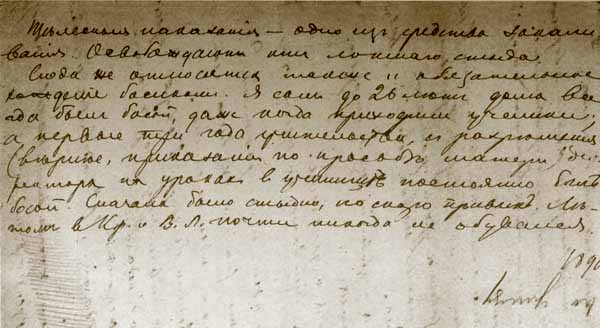 Тѣлесныя наказанія — одно изъ средствъ закали
ванія. Освобождаютъ отъ ложнаго стыда.
Сюда же относится также и обязательное
хожденіе босикомъ. Я самъ до 26 лѣтъ дома все
гда былъ босой, даже когда приходили ученики;
а первые три года учительства, съ разрѣшенія
(вѣрнѣе, приказанія по просьбѣ матери) ди
ректора на урокахъ въ училищѣ постоянно былъ
босой. Сначала было стыдно, но скоро привыкъ. Лѣ
томъ въ Кр. и В. Л. почти никогда не обувался.
189